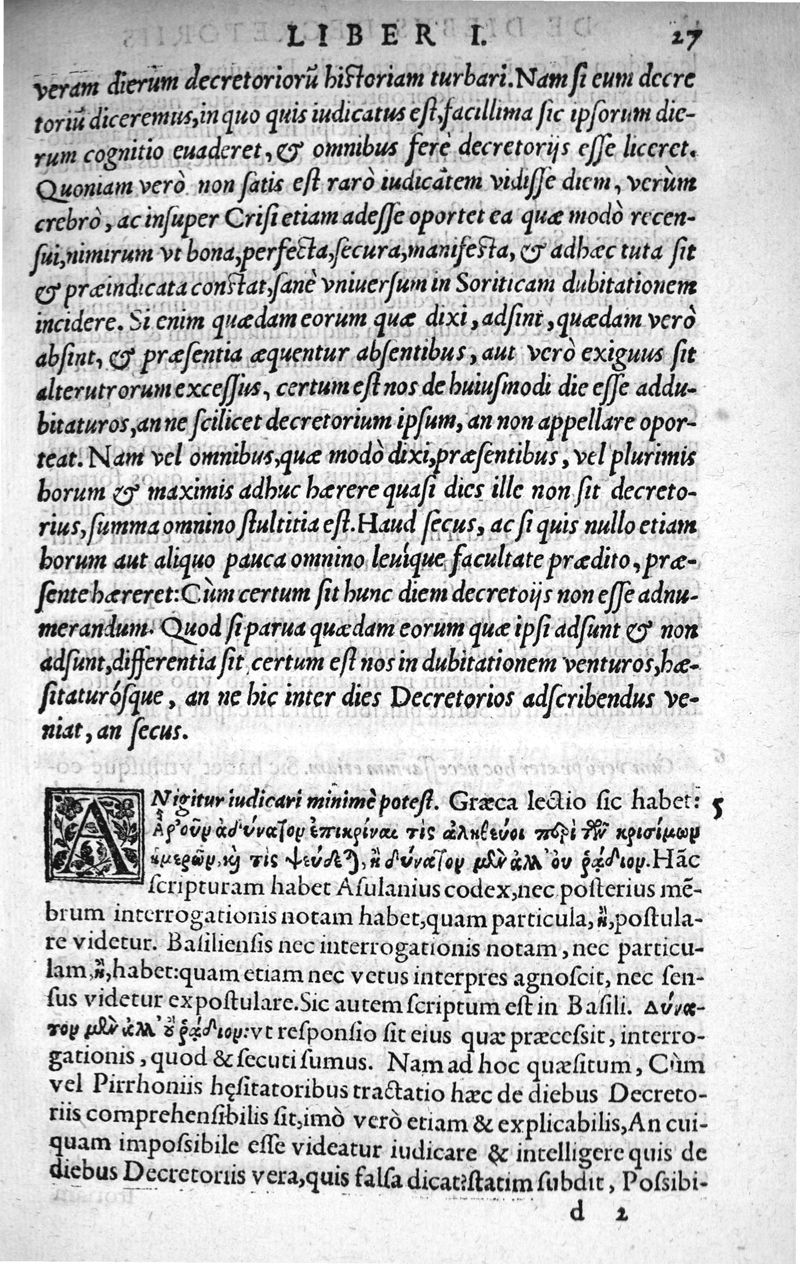 LIBER I. 27
veram dierum decretoriorũ historiam turbari. Nam si eum decre
toriũ diceremus, in quo quis iudicatus est, facillima sic ipsorum die-
rum cognitio euaderet, & omnibus ferè decretorijs esse liceret.
Quoniam verò non satis est rarò iudicãtem vidisse diem, verùm
crebrò, ac insuper Crisi etiam adesse oportet ea quæ modò recen-
sui, nimirum vt bona, perfecta, secura, manifesta, & adhæc tuta sit
& præindicata constat, sanè vniuersum in Soriticam dubitationem
incidere. Si enim quædam eorum quæ dixi, adsint, quædam verò
absint, & præsentia æquentur absentibus, aut verò exiguus sit
alterutrorum excessus, certum est nos de huiusmodi die esse addu-
bitaturos, an ne scilicet decretorium ipsum, an non appellare opor-
teat. Nam vel omnibus, quæ modò dixi, præsentibus, vel plurimis
horum & maximis adhuc hærere quasi dies ille non sit decreto-
rius, summa omnino stultitia est. Haud secus, ac si quis nullo etiam
horum aut aliquo pauca omnino leuíque facultate prædito, præ-
sente hæreret: Cùm certum sit hunc diem decretoijs non esse adnu-
merandum. Quod si parua quædam eorum quæ ipsi adsunt & non
adsunt, differentia sit, certum est nos in dubitationem venturos, hæ-
sitaturósque, an ne hic inter dies Decretorios adscribendus ve-
niat, an secus.
AN igitur iudicari minimè potest. Græca lectio sic habet: 5
Ἀρ' οὖν ἀδύνατον ἐπικρίναι τὶς ἀληθεύοι περὶ τῶν κρισίμων
ἡμερῶν, κὴ τὶς ψεύδετ, ἢ δύνατον μὲν ἀλλ' οὐ ῥᾴδιον. Hãc
scripturam habet Asulanius codex, nec posterius mẽ-
brum interrogationis notam habet, quam particula, ἢ, postula-
re videtur. Basiliensis nec interrogationis notam, nec particu-
lam, ἢ, habet: quam etiam nec vetus interpres agnoscit, nec sen-
sus videtur expostulare. Sic autem scriptum est in Basili. Δύνα-
τον μὲν ἀλλ' οὐ ῥᾴδιον: vt responsio sit eius quæ præcessit, interro-
gationis, quod & secuti sumus. Nam ad hoc quæsitum, Cùm
vel Pirrhoniis hęsitatoribus tractatio hæc de diebus Decreto-
riis comprehensibilis sit, imò verò etiam & explicabilis, An cui-
quam impossibile esse videatur iudicare & intelligere quis de
diebus Decretoriis vera, quis falsa dicat? statim subdit, Possibi-
d 2